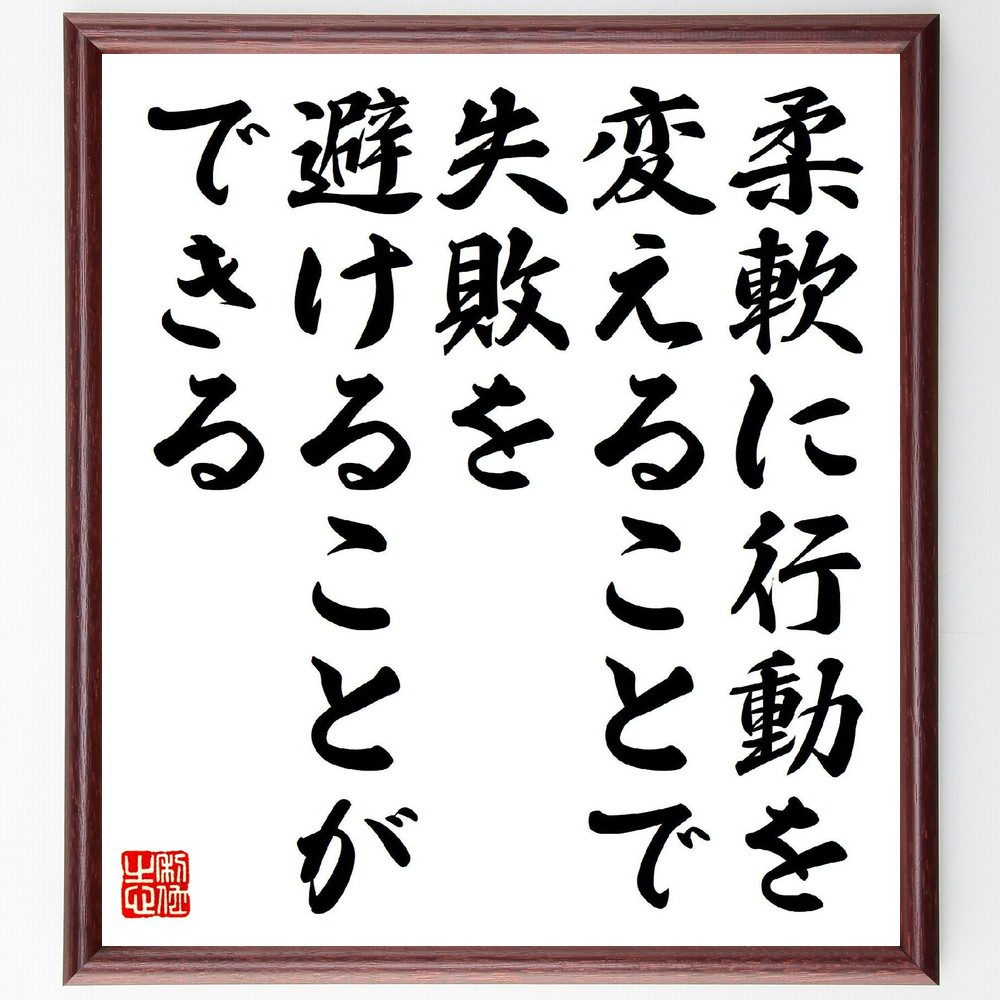 柔軟に行動を
変えることで
失敗を
避けることが
できる